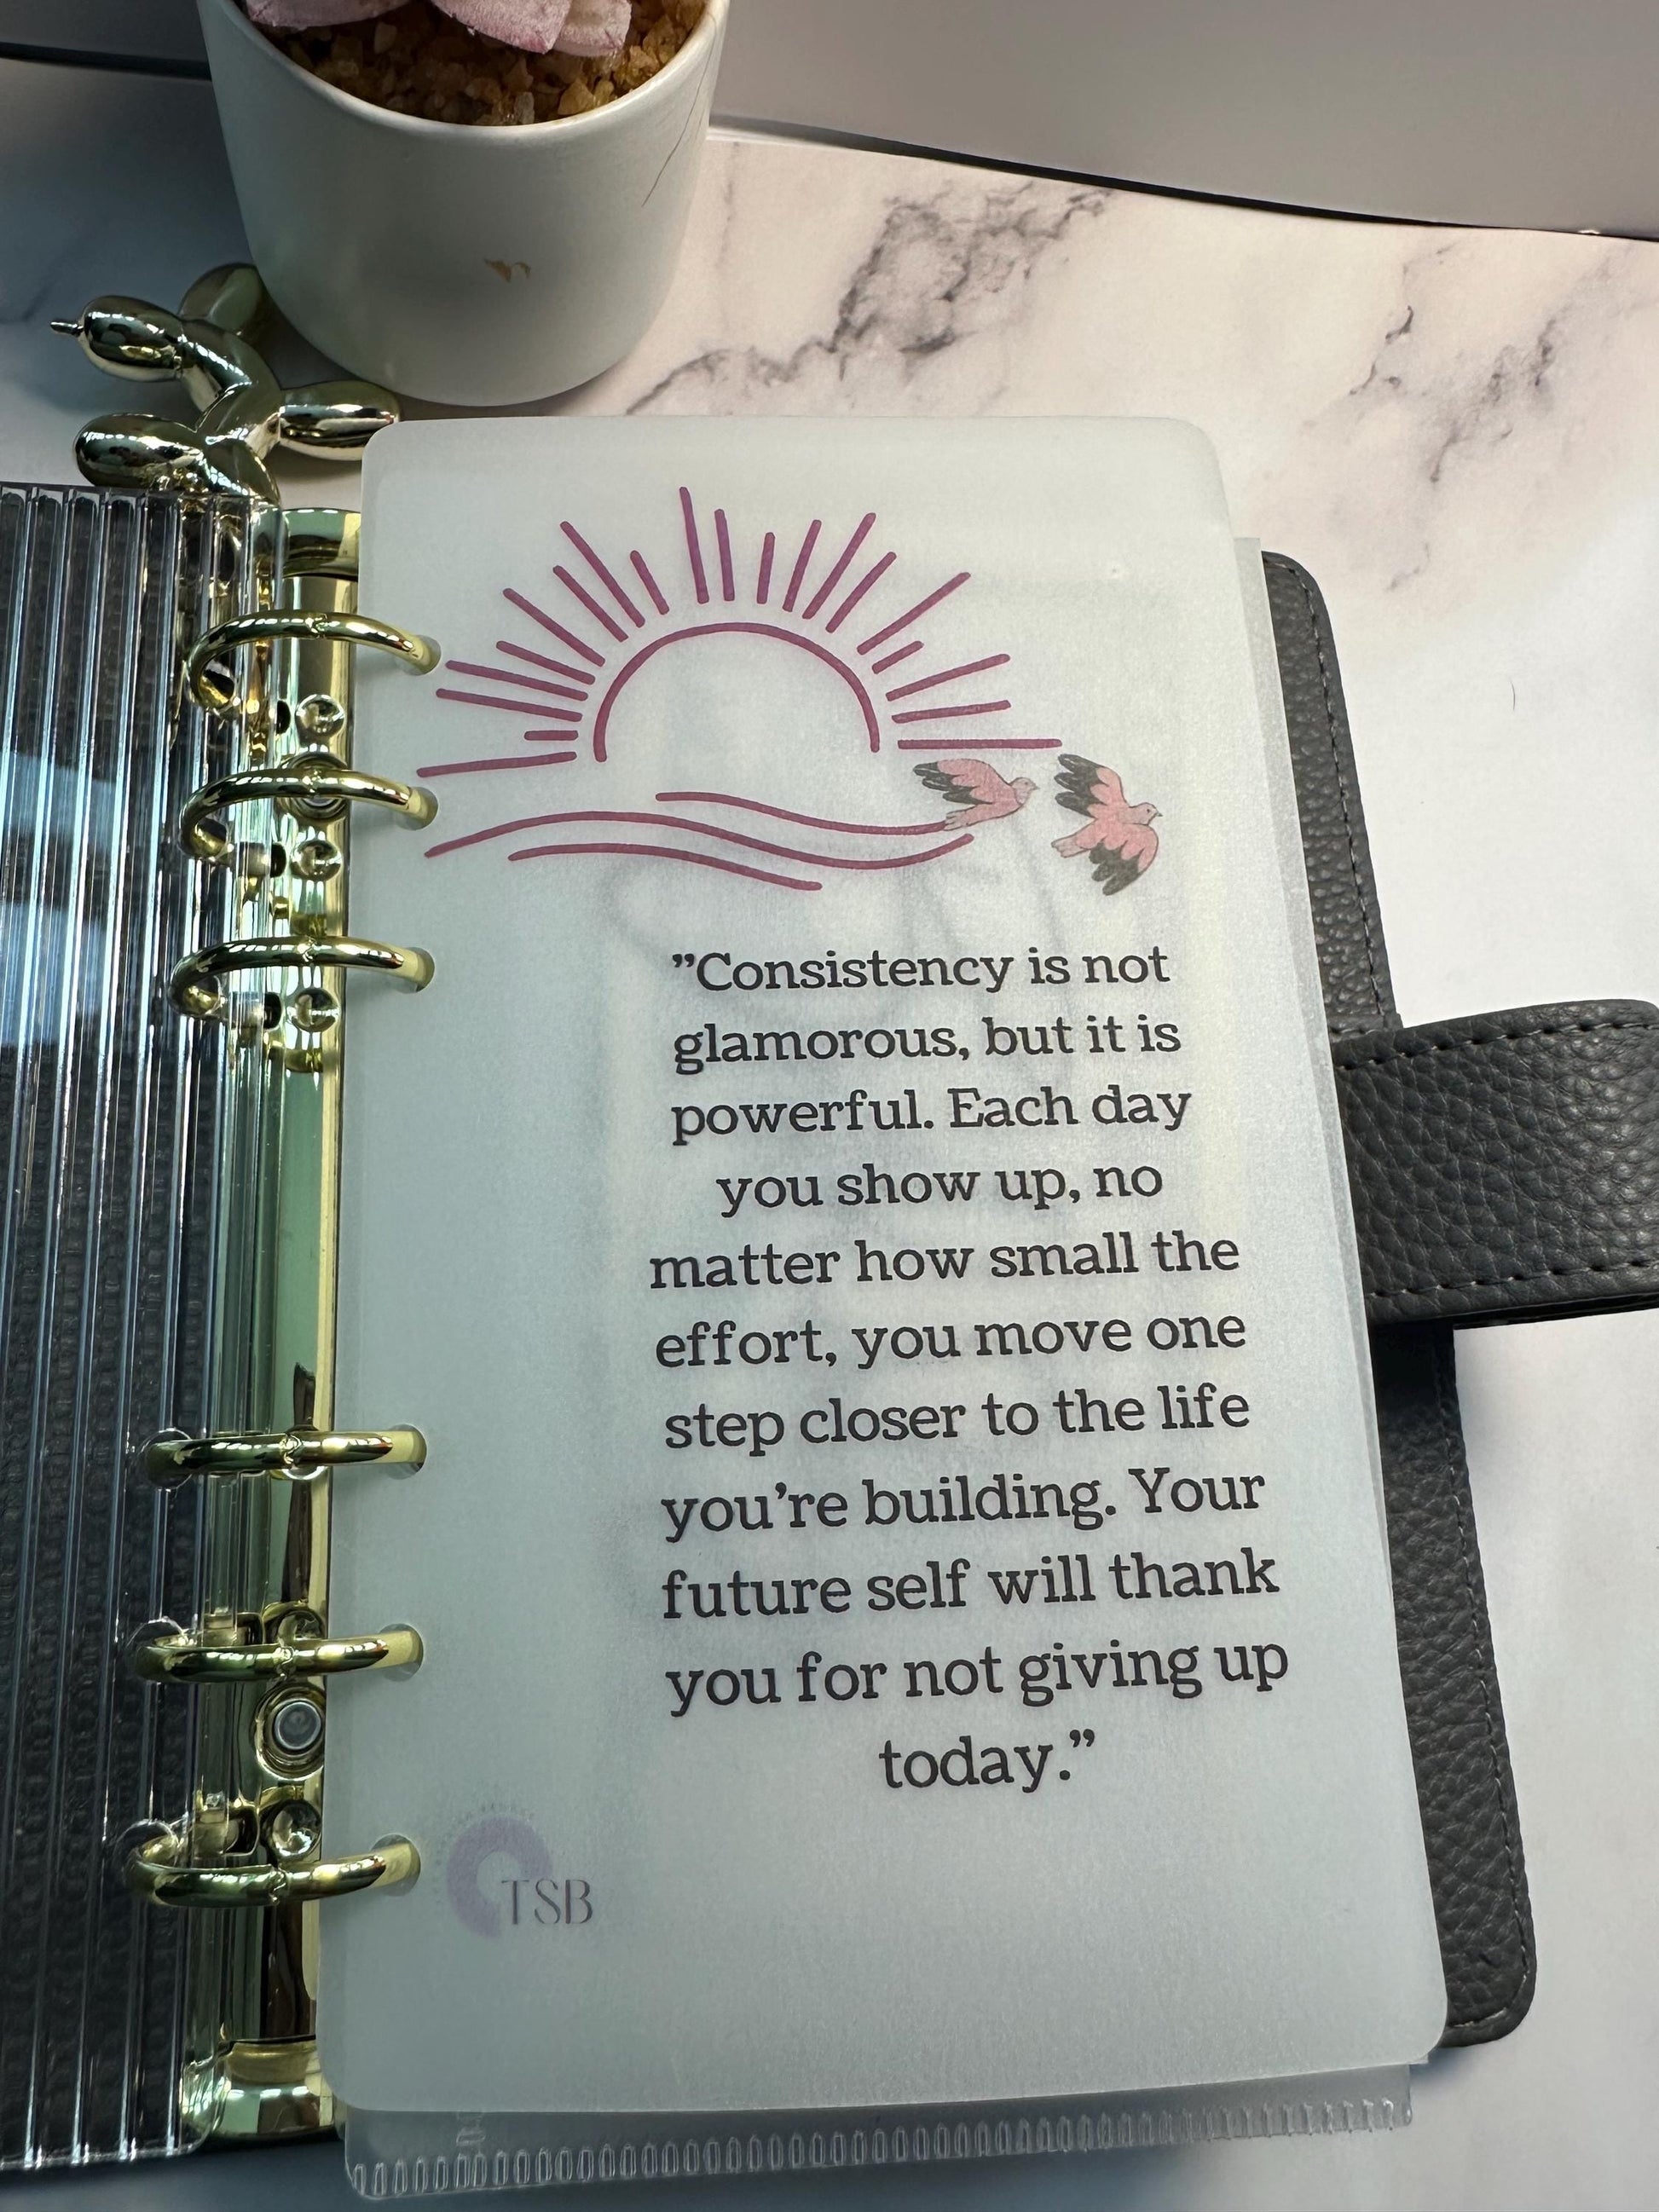 ”Consistency is not
glamorous, but it is
powerful. Each day
you show up, no
matter how small the
effort, you move one
step closer to the life
you’re building. Your
future self will thank
you for not giving up
today.”
TSB